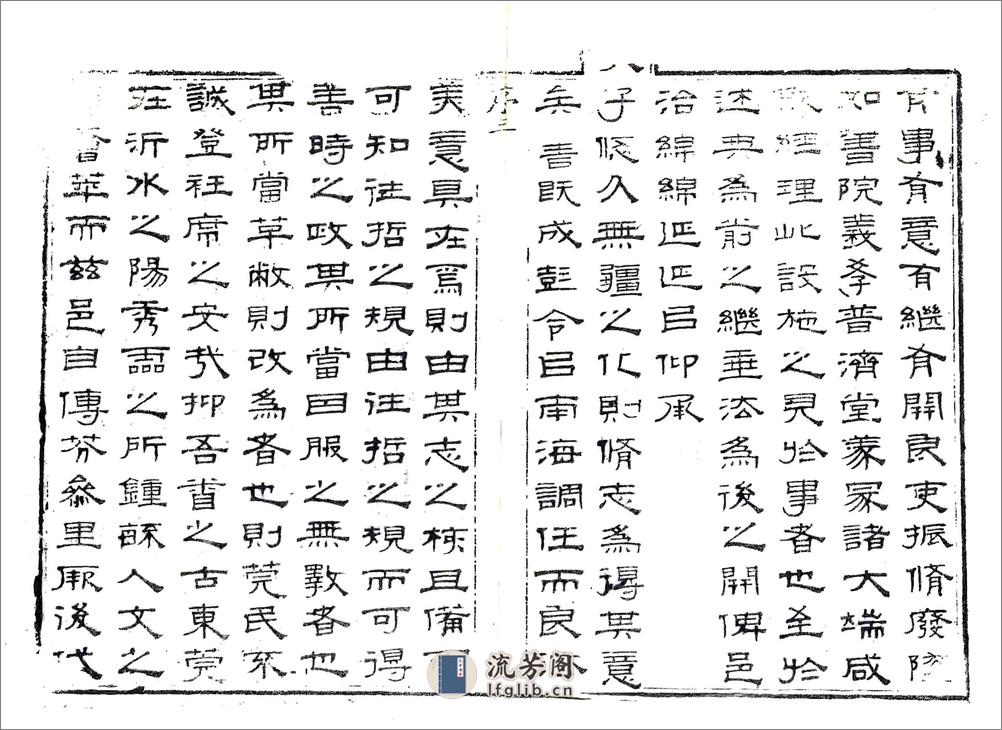 有事有意有繼有開良吏振脩廢
如書院義孝普濟堂義冢諸大端咸
經理此設施之見於事者也至於
述典為前之繼垂法為後之開俾邑
治綿綿延延㠯仰承
天子悠久無疆之化則脩志為得其意
矣書旣成彭令㠯南海調任而良
序三
美意具在焉則由其志之核且備而
可知往哲之規由往哲之規而可得
善時之政其所當因服之無斁者也
其所當革敝則改為者也則莞民不
誠登衽席之安哉抑吾晉之古東莞
在沂水之陽秀靈之所鍾人文之
薈萃而茲邑自傳芬叅里厥後代
流芳阁
lfglib.cn